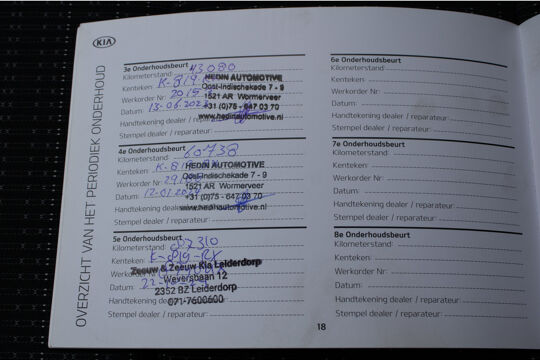 KIA
OVERZICHT VAN HET PERIODIEK ONDERHOUD
3e Onderhoudsbeurt
Kilometerstand: 43080
Kenteken:
HEDIN AUTOMOTIVE
Oost-Indischekade 7 - 9
Werkorder Nr:
1521 AR Wormerveer
Datum:
+31 (0)75 - 647 03 70
Handtekening dealer / reparateur:
www.hedinautomotive.nl
Stempel dealer / reparateur:
4e Onderhoudsbeurt
Kilometerstand: 60738
Kenteken:
HEDIN AUTOMOTIVE
Oost-Indischekade 7 - 9
Werkorder Nr:
1521 AR Wormerveer
Datum:
+31 (0)75 - 647 03 70
Handtekening dealer
www.hedinautomotive.nl
Stempel dealer / reparateur:
5e Onderhoudsbeurt
Kilometerstand:
Kenteken:
Zeeuw & Zeeuw Kia Leiderdorp
Werkorder
Weversbaan 12
Datum:
2352 BZ Leiderdorp
Handtekening dealer / reparateur:
071-7600600
Stempel dealer / reparateur:
6e Onderhoudsbeurt
Kilometerstand:
Kenteken:
Werkorder Nr:
Datum:
Handtekening dealer / reparateur:
Stempel dealer / reparateur:
7e Onderhoudsbeurt
Kilometerstand:
Kenteken:
Werkorder Nr:
Datum:
Handtekening dealer / reparateur:
Stempel dealer / reparateur:
8e Onderhoudsbeurt
Kilometerstand:
Kenteken:
Werkorder Nr:
Datum:
Handtekening dealer / reparateur:
Stempel dealer / reparateur:
18